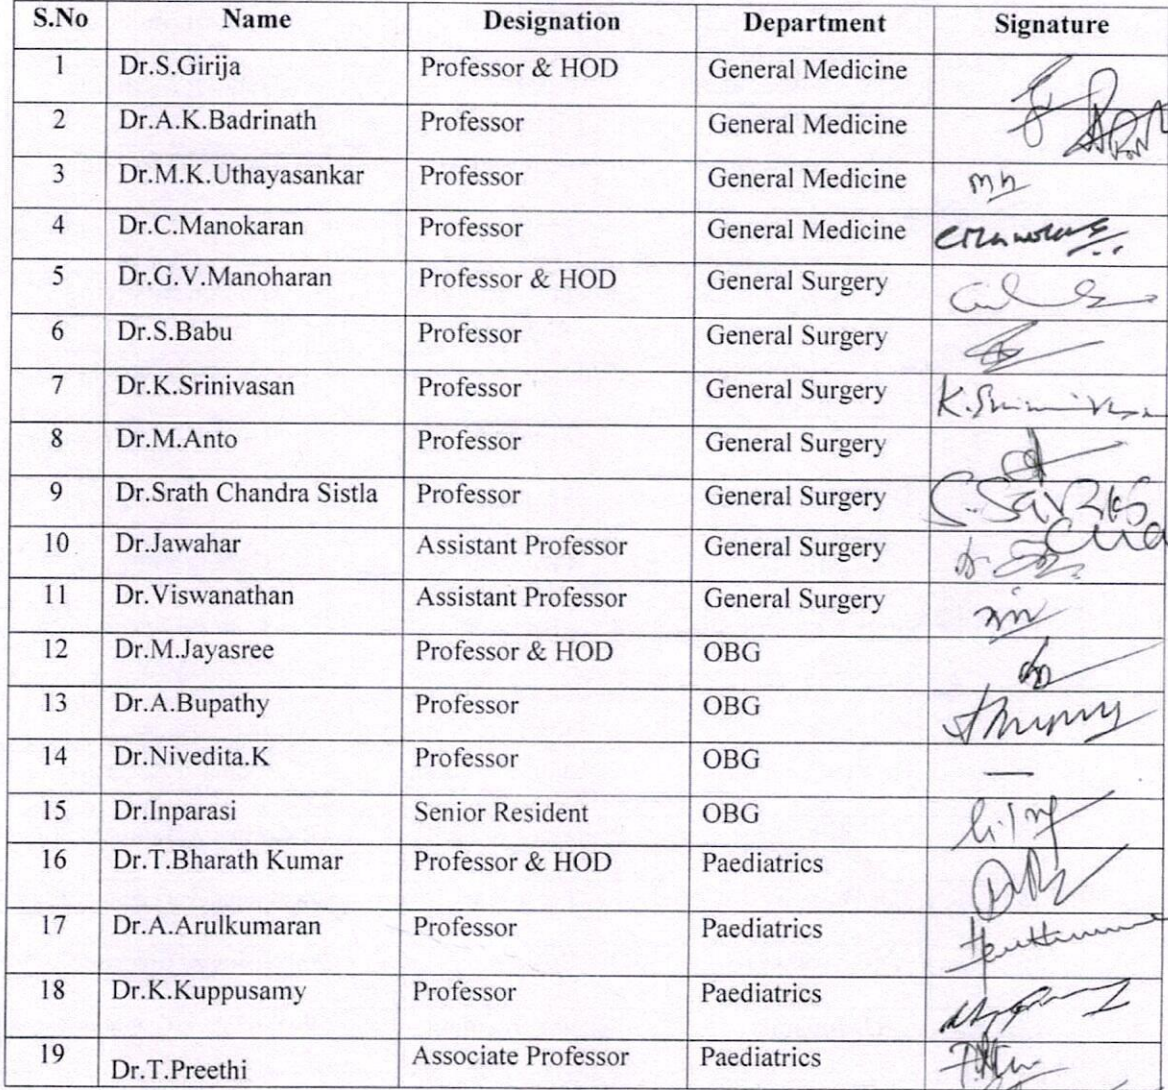 S.No Name Designation Department Signature
1 Dr.S.Girija Professor & HOD General Medicine
2 Dr.A.K.Badrinath Professor General Medicine
3 Dr.M.K.Uthayasankar Professor General Medicine
4 Dr.C.Manokaran Professor General Medicine
5 Dr.G.V.Manoharan Professor & HOD General Surgery
6 Dr.S.Babu Professor General Surgery
7 Dr.K.Srinivasan Professor General Surgery
8 Dr.M.Anto Professor General Surgery
9 Dr.Srath Chandra Sistla Professor General Surgery
10 Dr.Jawahar Assistant Professor General Surgery
11 Dr.Viswanathan Assistant Professor General Surgery
12 Dr.M.Jayasree Professor & HOD OBG
13 Dr.A.Bupathy Professor OBG
14 Dr.Nivedita.K Professor OBG
15 Dr.Inparasi Senior Resident OBG
16 Dr.T.Bharath Kumar Professor & HOD Paediatrics
17 Dr.A.Arulkumaran Professor Paediatrics
18 Dr.K.Kuppusamy Professor Paediatrics
19 Dr.T.Preethi Associate Professor Paediatrics